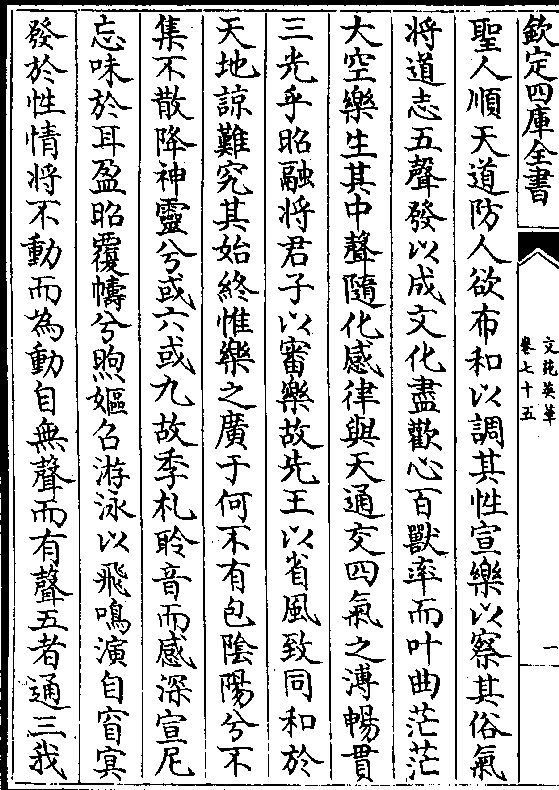 欽定四庫全書
文苑英華
卷七十五
一
聖人順天道防人欲布和以調其性宣樂以察其俗氣
將道志五聲發以成文化盡歡心百獸率而叶曲茫茫
大空樂生其中聲隨化感律與天通交四氣之溥暢貫
三光乎昭融將君子以審樂故先王以省風致同和於
天地諒難究其始終惟樂之廣于何不有包陰陽兮不
集不散降神靈兮或六或九故季札聆音而感深宣尼
忘味於耳盈昭覆幬兮煦嫗召游泳以飛鳴演自窅冥
發於性情將不動而為動自無聲而有聲五者通三我